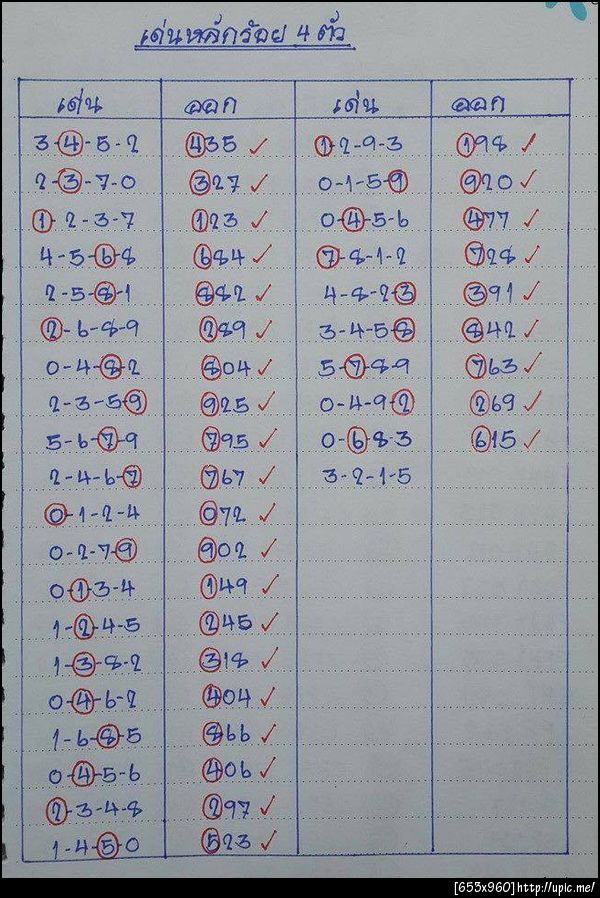 เด่นหลักร้อย 4 ตัว
เด่น ออก เด่น ออก
3-4-5-2 435 ✓ 1-2-9-3 198 ✓
2-3-7-0 327 ✓ 0-1-5-9 920 ✓
1-2-3-7 123 ✓ 0-4-5-6 477 ✓
4-5-6-8 684 ✓ 7-8-1-2 728 ✓
2-5-8-1 882 ✓ 4-8-2-3 391 ✓
2-6-8-9 289 ✓ 3-4-5-8 842 ✓
0-4-8-2 804 ✓ 5-7-8-9 763 ✓
2-3-5-9 925 ✓ 0-4-9-2 269 ✓
5-6-7-9 795 ✓ 0-6-8-3 615 ✓
2-4-6-7 767 ✓ 3-2-1-5
0-1-2-4 072 ✓
0-2-7-9 902 ✓
0-1-3-4 149 ✓
1-2-4-5 245 ✓
1-3-8-2 318 ✓
0-4-6-2 404 ✓
1-6-8-5 866 ✓
0-4-5-6 406 ✓
2-3-4-8 297 ✓
1-4-5-0 523 ✓
[653x960]http://upic.me/